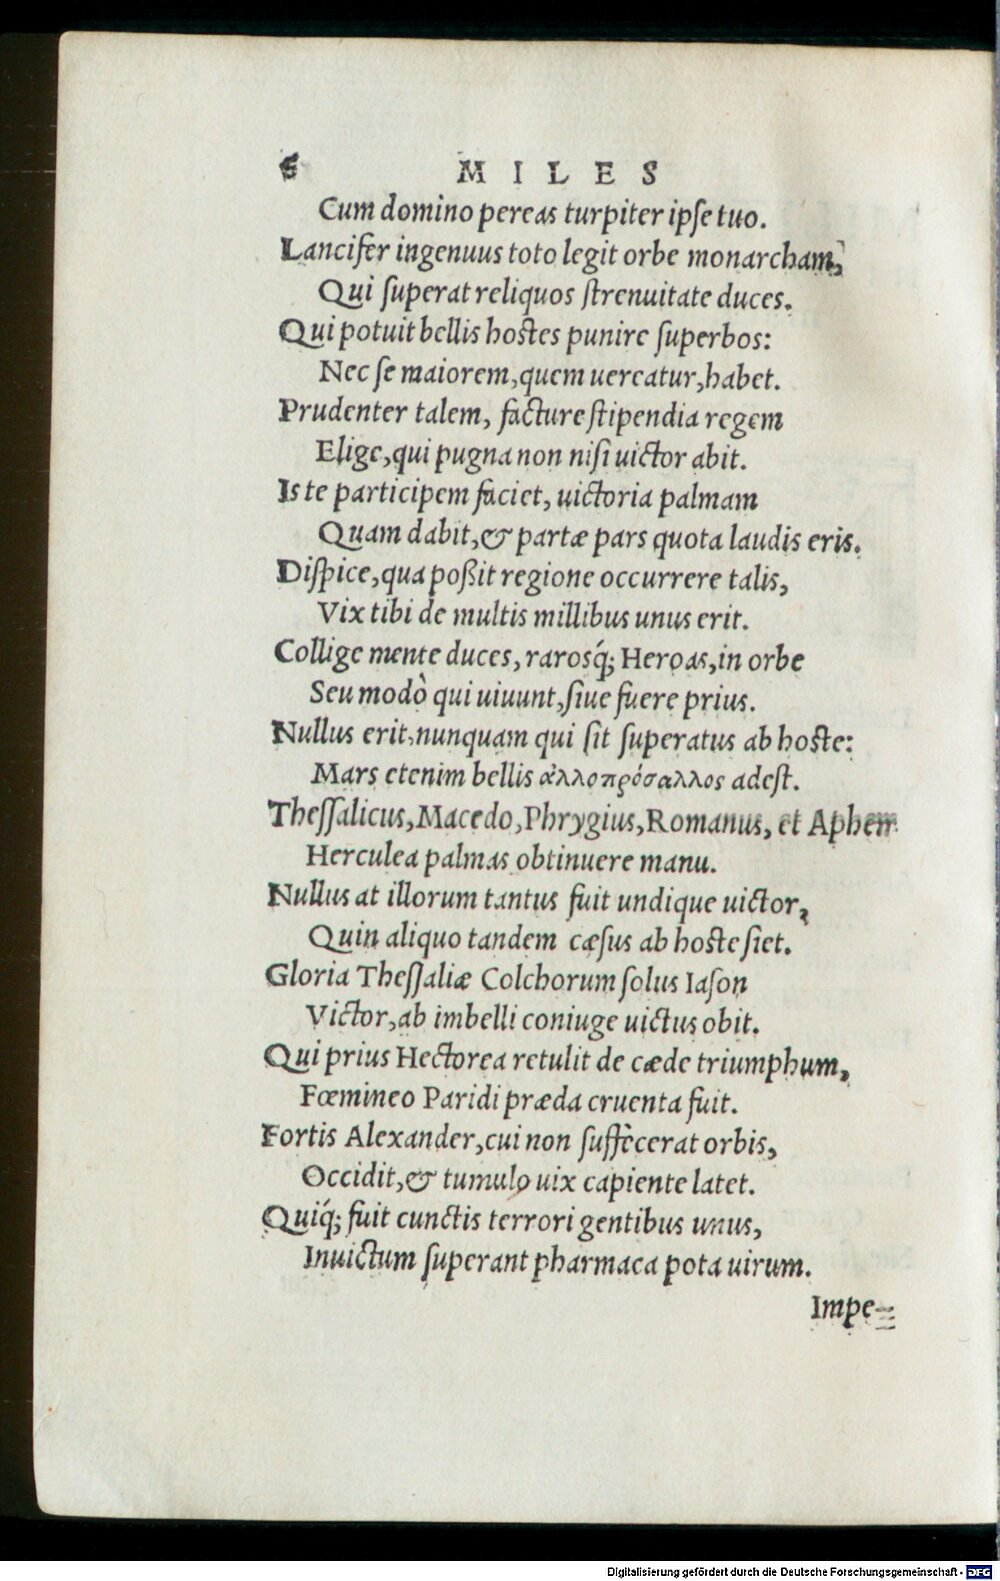 6 MILES
Cum domino pereas turpiter ipſe tuo.
Lancifer ingenuus toto legit orbe monarcham,
Qui ſuperat reliquos ſtrenuitate duces.
Qui potuit bellis hoſtes punire ſuperbos:
Nec ſe maiorem, quem uereatur, habet.
Prudenter talem, facture ſtipendia regem
Elige, qui pugna non niſi uictor abit.
Is te participem faciet, uictoria palmam
Quam dabit, & partæ pars quota laudis eris.
Diſpice, qua poßit regione occurrere talis,
Vix tibi de multis millibus unus erit.
Collige mente duces, rarosq́; Heroas, in orbe
Seu modò qui uiuunt, ſiue fuere prius.
Nullus erit, nunquam qui ſit ſuperatus ab hoſte:
Mars etenim bellis ἀλλοπρόσαλλος adeſt.
Theſſalicus, Macedo, Phrygius, Romanus, et Apher
Herculea palmas obtinuere manu.
Nullus at illorum tantus fuit undique uictor,
Quin aliquo tandem cæſus ab hoſte ſiet.
Gloria Theſſaliæ Colchorum ſolus Iaſon
Victor, ab imbelli coniuge uictus obit.
Qui prius Hectorea retulit de cæde triumphum,
Fœmineo Paridi præda cruenta fuit.
Fortis Alexander, cui non ſuffecerat orbis,
Occidit, & tumulo uix capiente latet.
Quiq́; fuit cunctis terrori gentibus unus,
Inuictum ſuperant pharmaca pota uirum.
Impe-
Digitalisierung gefördert durch die Deutsche Forschungsgemeinschaft - DFG